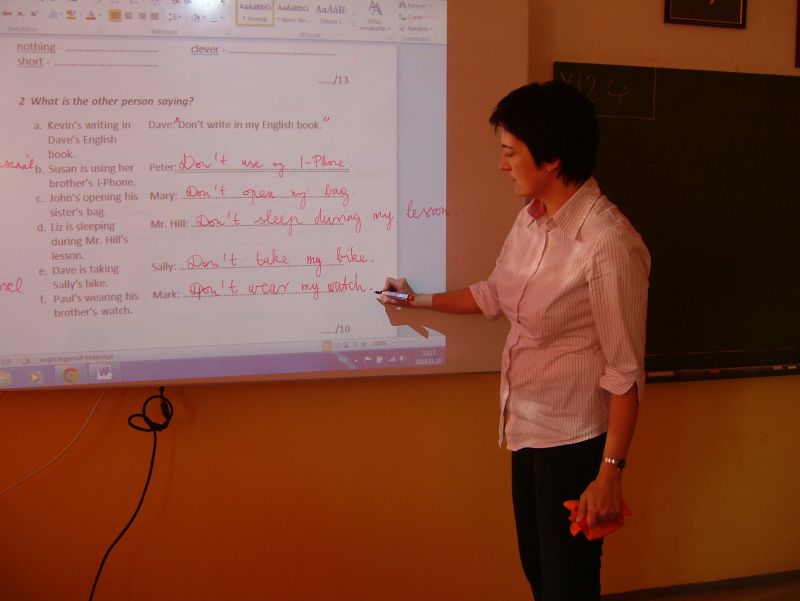 AaBbCc AaBbCc AaBbC
¶ Normál
nothing - ........................ clever - ........................
short - ........................
...../13
2 What is the other person saying?
a. Kevin's writing in Dave's English book. Dave: "Don't write in my English book."
b. Susan is using her brother's I-Phone. Peter: Don't use my I-Phone.
c. John's opening his sister's bag. Mary: Don't open my bag.
d. Liz is sleeping during Mr. Hill's lesson. Mr. Hill: Don't sleep during my lesson.
e. Dave is taking Sally's bike. Sally: Don't take my bike.
f. Paul's wearing his brother's watch. Mark: Don't wear my watch.
...../10
100%
13:17
2014.11.24.